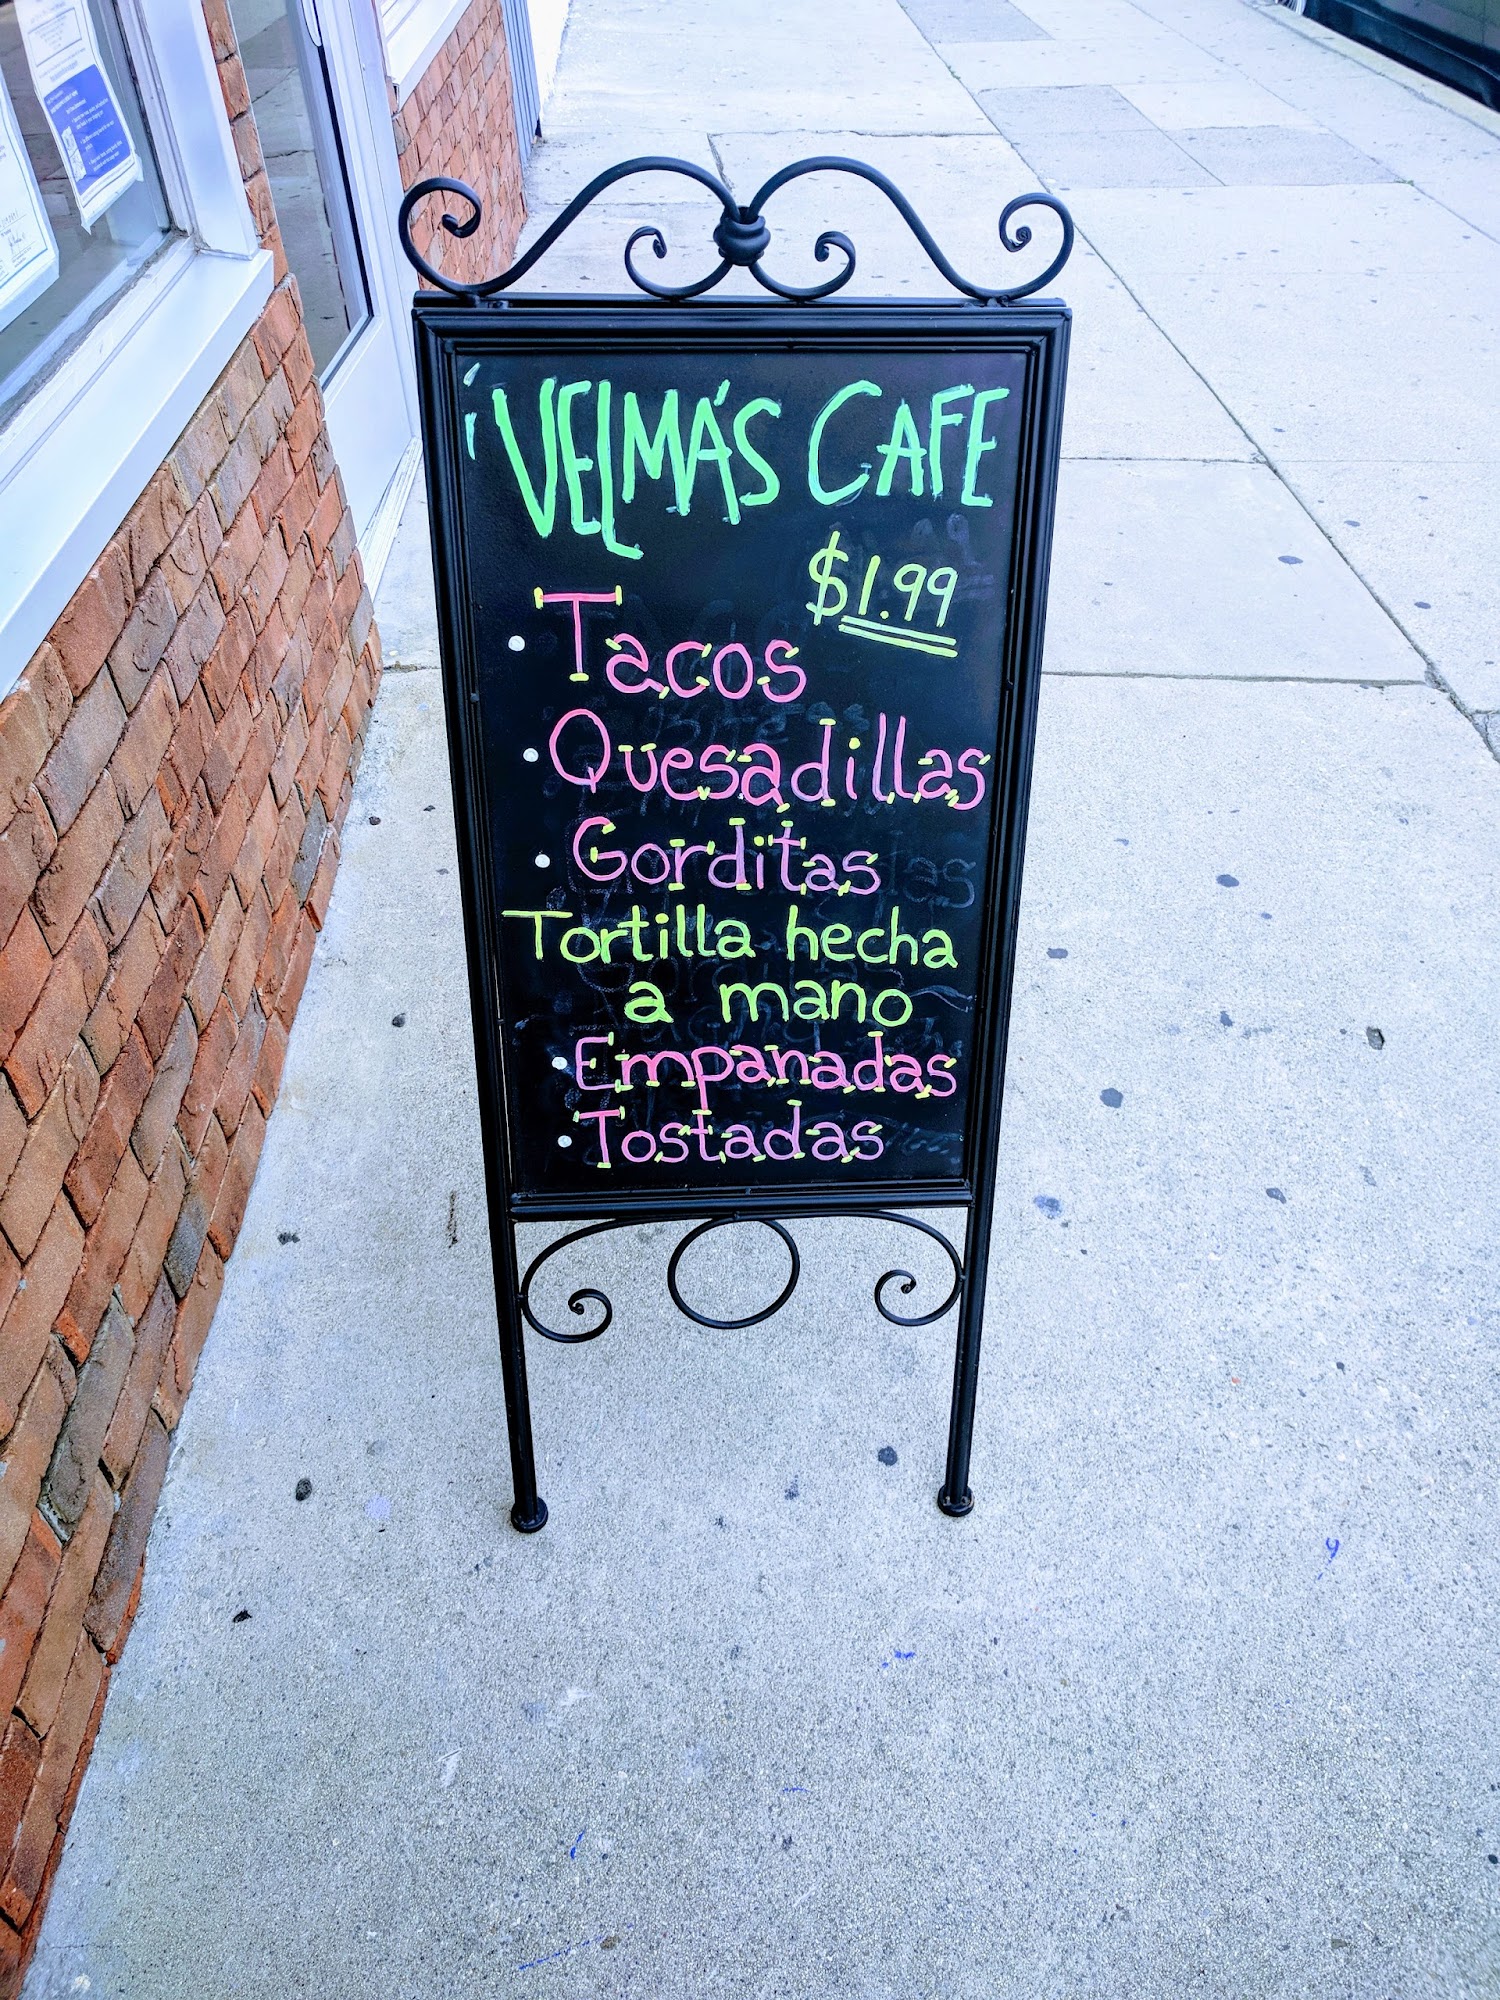 VELMA'S CAFE
$1.99
• Tacos
• Quesadillas
• Gorditas
Tortilla hecha
a mano
• Empanadas
• Tostadas